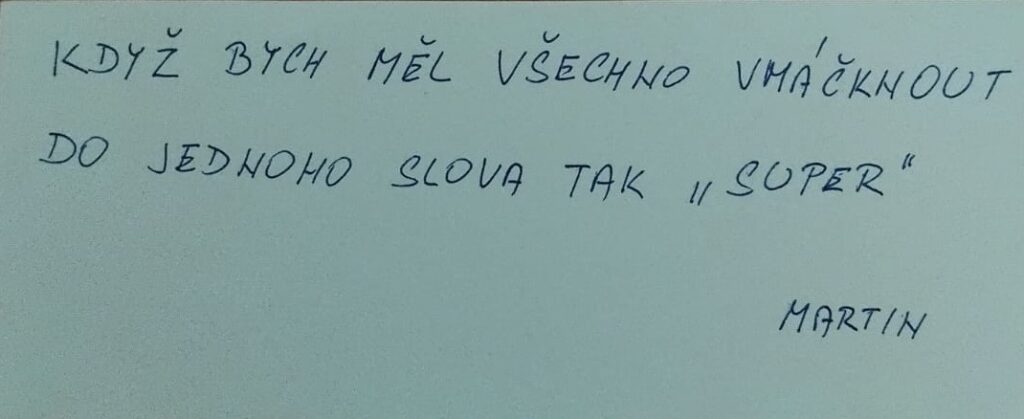 KDYŽ BYCH MĚL VŠECHNO VMÁČKNOUT
DO JEDNOHO SLOVA TAK „SUPER“
MARTIN